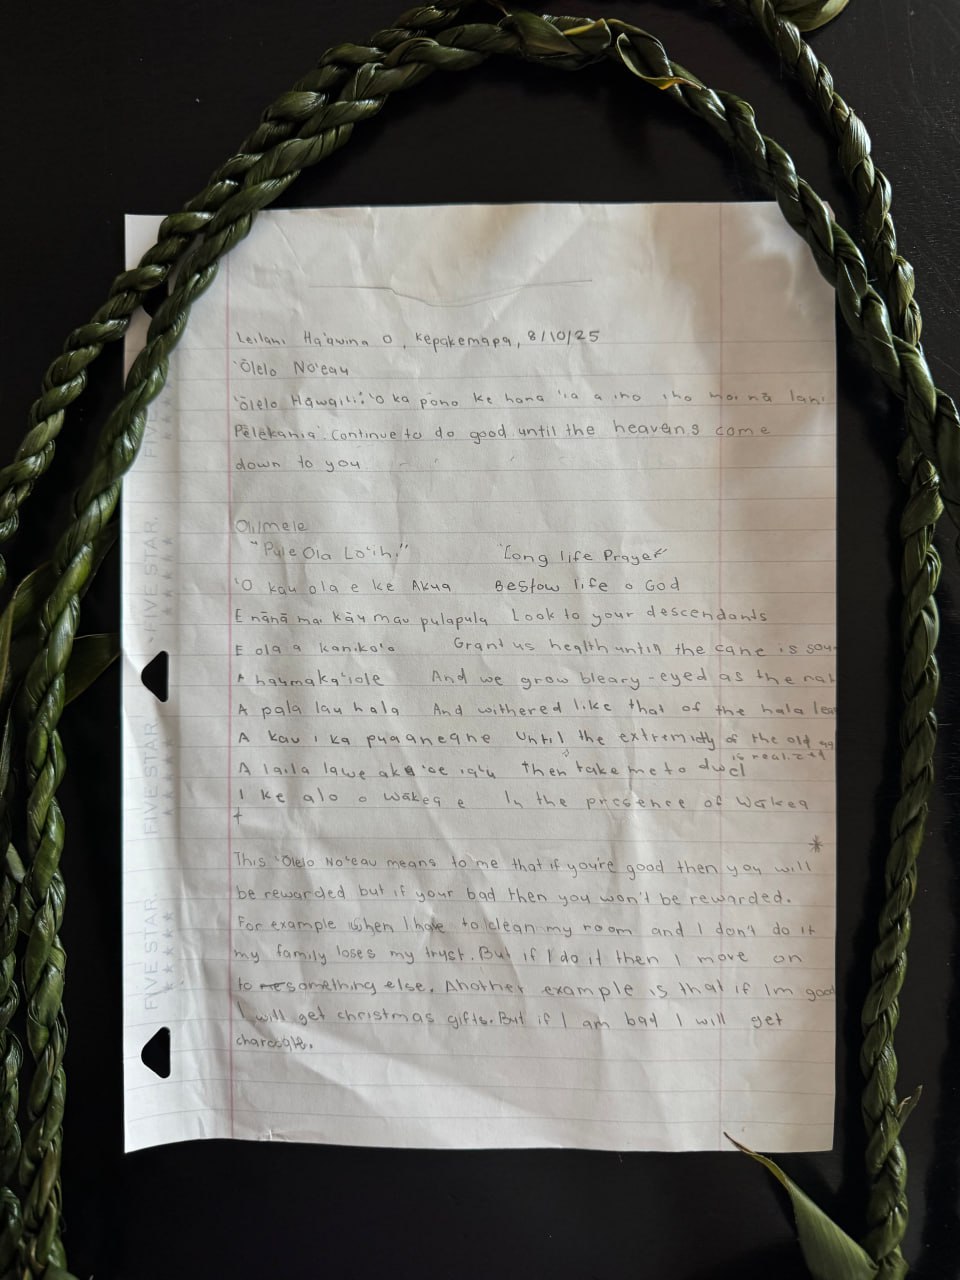 Leilani Ha'awina O, Kepakemapa, 8/10/25
'Ōlelo No'eau
'Ōlelo Hawai'i: 'O ka pono ke hana 'ia a iho mai nā lani
Pelekania: Continue to do good until the heavens come
down to you
Oli/mele
"Pule Ola Lō'ihi" "Long life Prayer"
'O kau ola e ke Akua Bestow life o God
E nānā mai kāu mau pulapula Look to your descendants
E ola a kaniko'o Grant us health until the cane is
A haumaka'iole And we grow bleary-eyed as the
A pala lau hala And withered like that of the hala
A kau i ka puaaneane Until the extremidy of the old
is realized
A laila lawe aku 'oe ia'u Then take me to dwel
I ke alo o Wākea e In the presence of Wakea
*
This 'Ōlelo No'eau means to me that if you're good then you will
be rewarded but if your bad then you won't be rewarded.
For example when I have to clean my room and I don't do it
my family loses my trust. But if I do it then I move on
to something else. Another example is that if Im good
I will get christmas gifts. But if I am bad I will get
FIVE STAR.
FIVE STAR.
FIVE STAR.